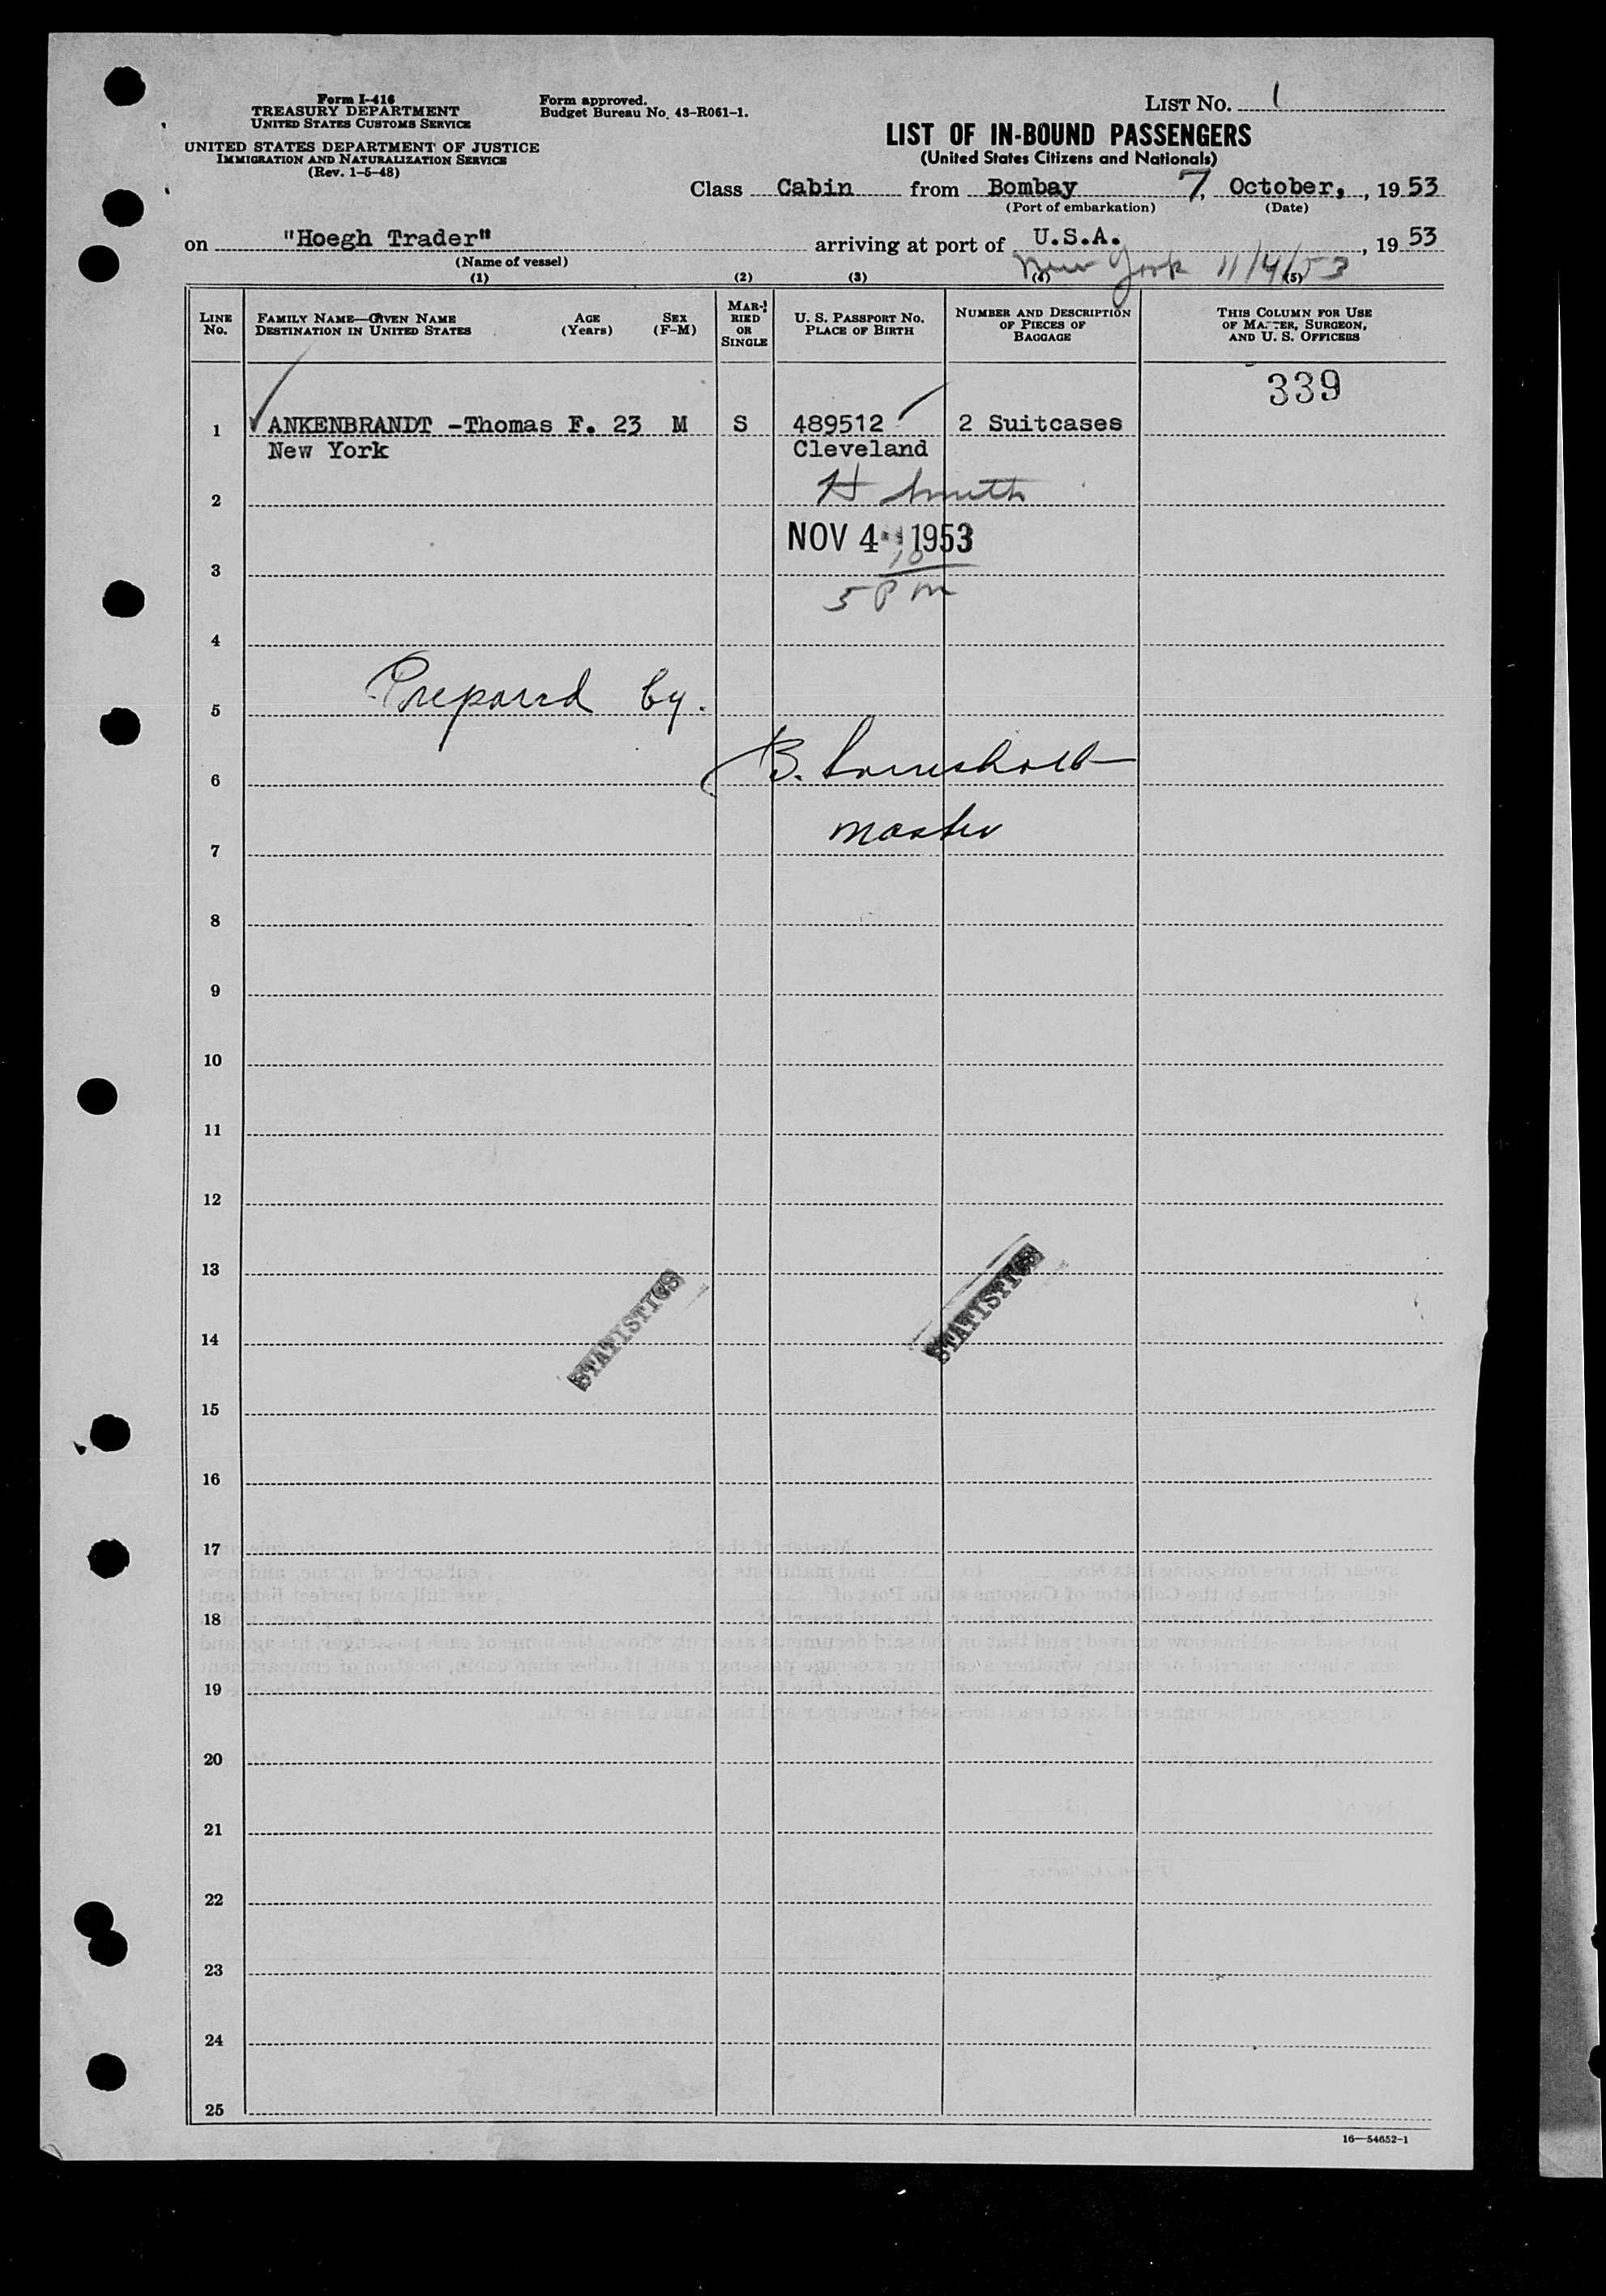 Form I-416
TREASURY DEPARTMENT
UNITED STATES CUSTOMS SERVICE
UNITED STATES DEPARTMENT OF JUSTICE
IMMIGRATION AND NATURALIZATION SERVICE
(Rev. 1-5-48)
Form approved.
Budget Bureau No. 43-R061-1.
LIST NO. 1
LIST OF IN-BOUND PASSENGERS
(United States Citizens and Nationals)
Class Cabin from Bombay 7, October, , 1953
(Port of embarkation) (Date)
on "Hoegh Trader" arriving at port of U.S.A. , 1953
(Name of vessel) New York 11/4/53
(1) (2) (3) (4) (5)
LINE No.
FAMILY NAME—GIVEN NAME
DESTINATION IN UNITED STATES
AGE (Years)
SEX (F-M)
MARRIED OR SINGLE
U. S. PASSPORT NO.
PLACE OF BIRTH
NUMBER AND DESCRIPTION OF PIECES OF BAGGAGE
THIS COLUMN FOR USE OF MASTER, SURGEON, AND U. S. OFFICERS
339
1 ANKENBRANDT -Thomas F. 23 M S 489512 2 Suitcases
New York Cleveland
2 H Smith
NOV 4 1953
3 10
5 PM
4
5 Prepared by.
6 B.
Master
7
8
9
10
11
12
13
STATISTICS STATISTICS
14
15
16
17
18
19
20
21
22
23
24
25
16—54652-1